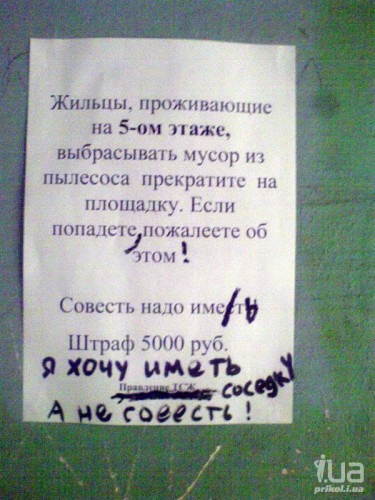 Жильцы, проживающие
на 5-ом этаже,
выбрасывать мусор из
пылесоса прекратите на
площадку. Если
попадете, пожалеете об
этом!
Совесть надо иметь
Штраф 5000 руб.
Я хочу иметь
Правление ТСЖ соседку
А не совесть!
i.ua
prikol.i.ua